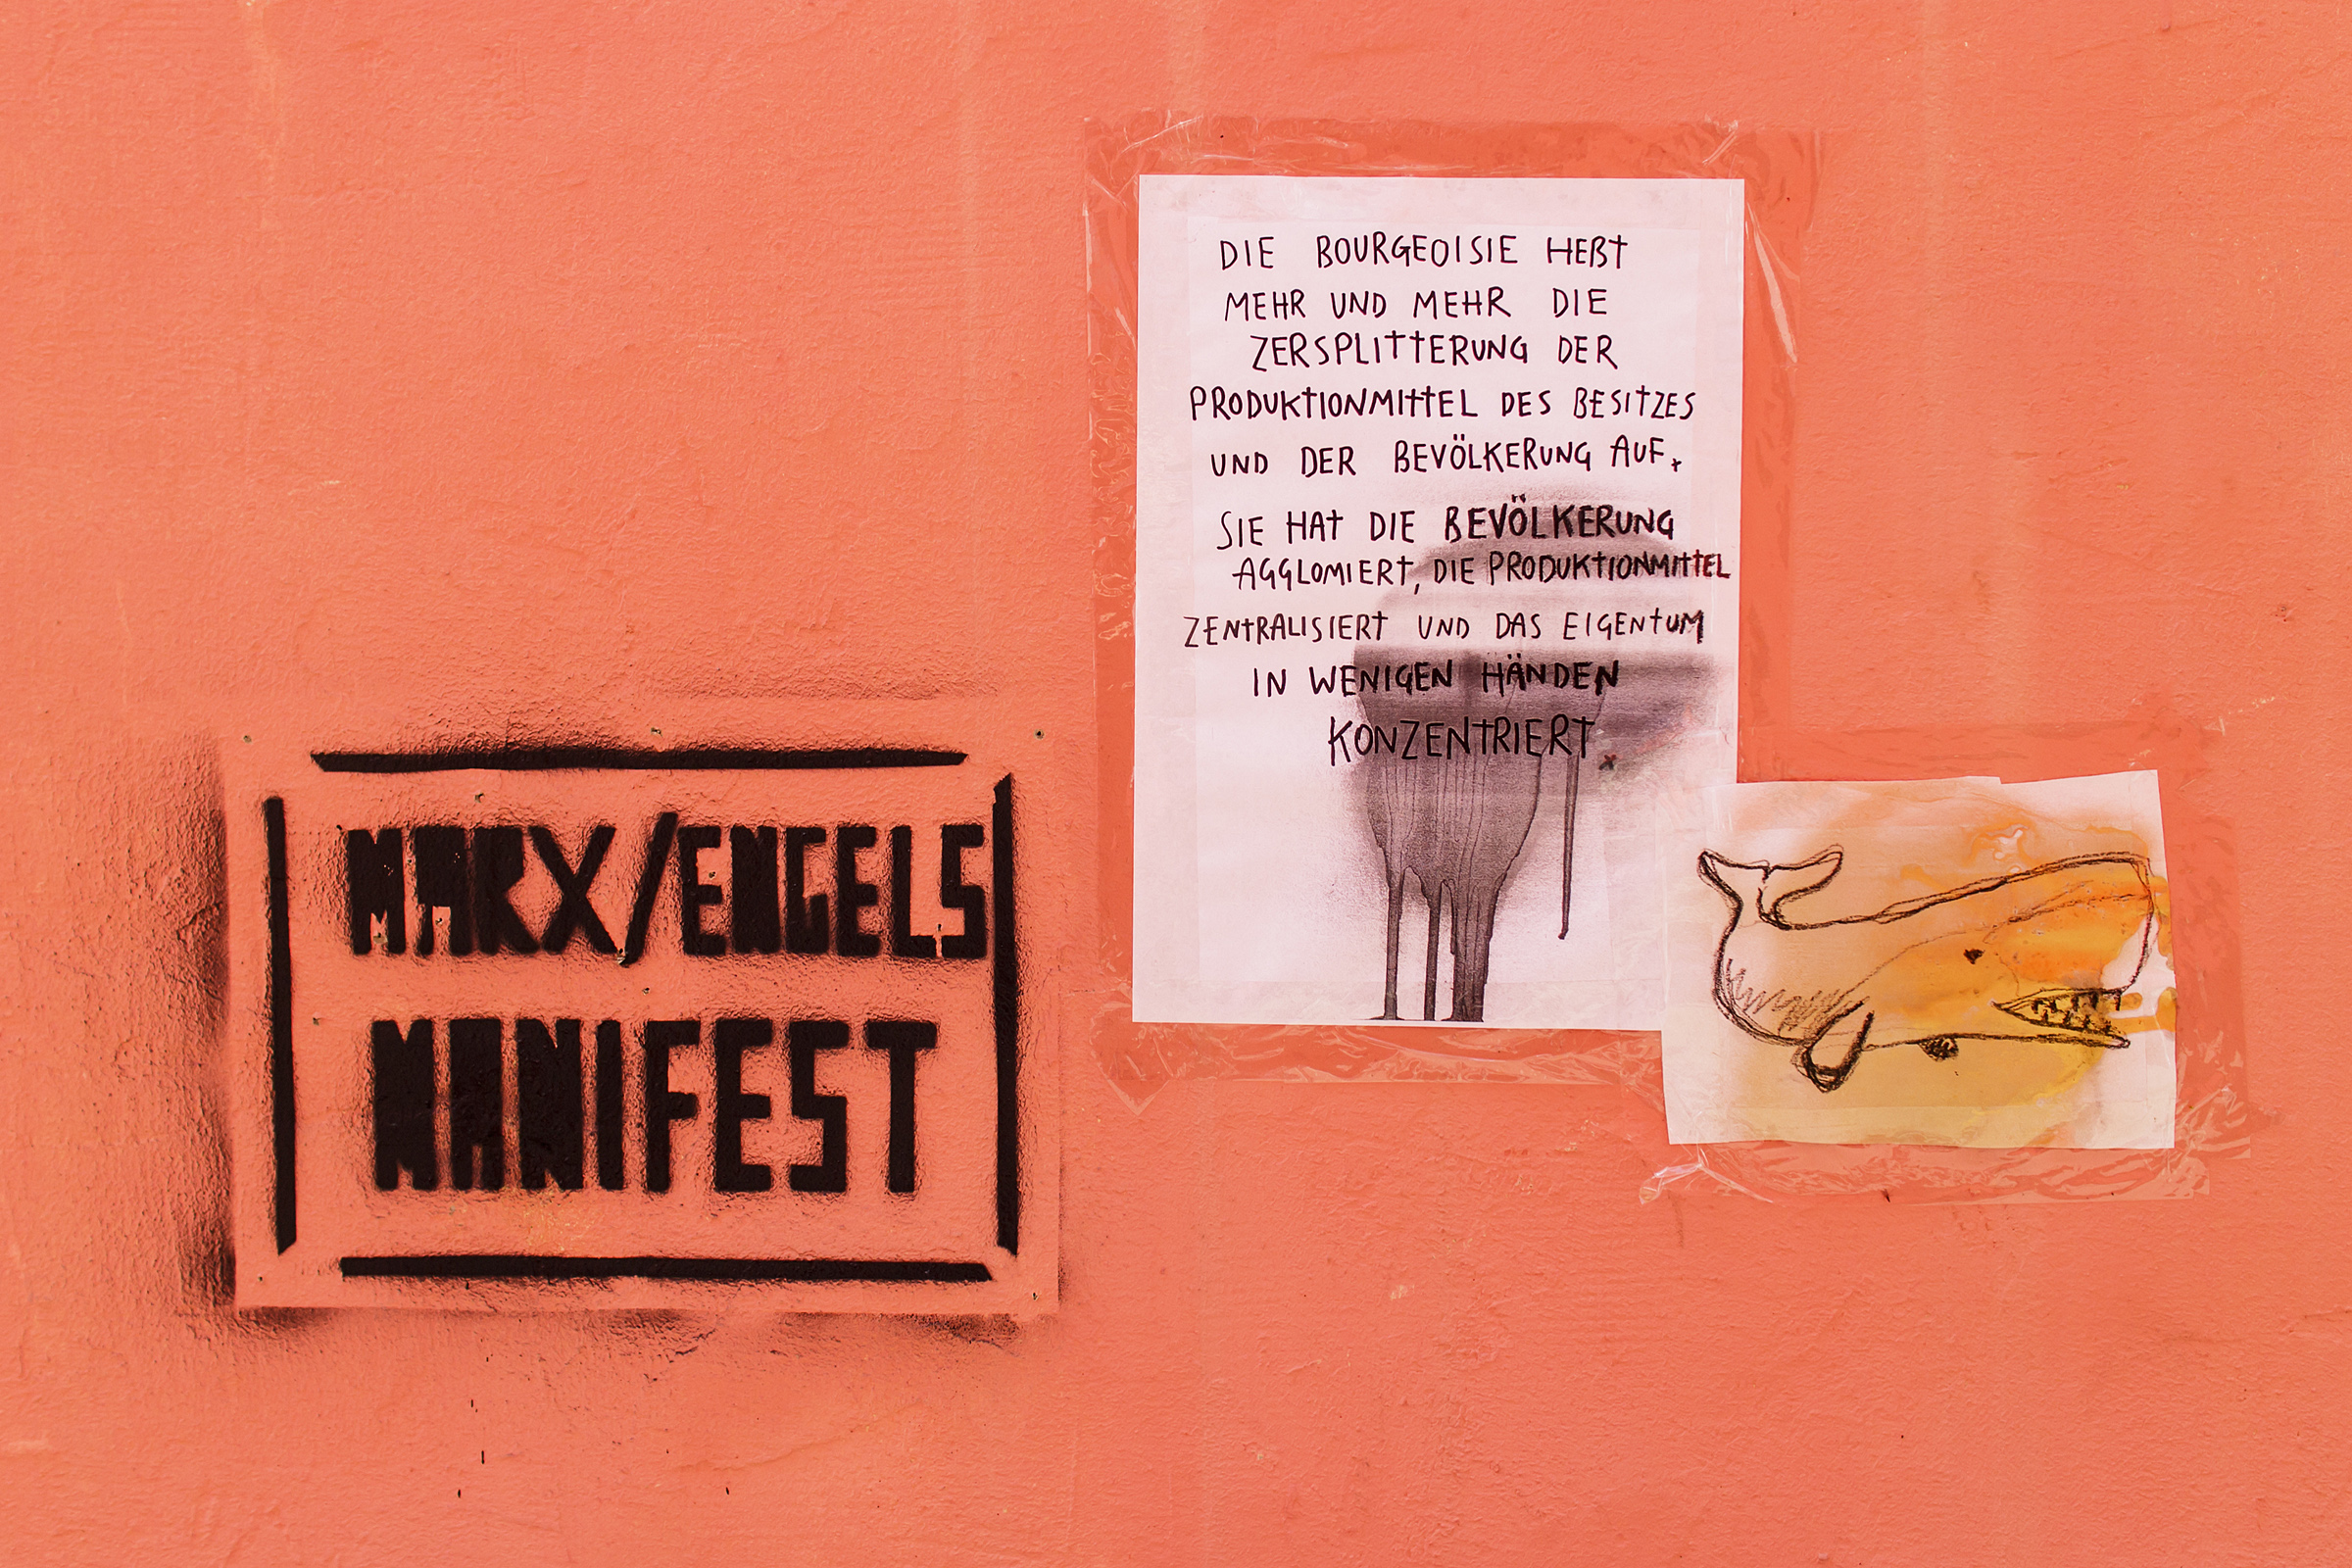 MARX/ENGELS
MANIFEST
DIE BOURGEOISIE HEBT
MEHR UND MEHR DIE
ZERSPLITTERUNG DER
PRODUKTIONMITTEL DES BESITZES
UND DER BEVÖLKERUNG AUF.
SIE HAT DIE BEVÖLKERUNG
AGGLOMIERT, DIE PRODUKTIONMITTEL
ZENTRALISIERT UND DAS EIGENTUM
IN WENIGEN HÄNDEN
KONZENTRIERT.